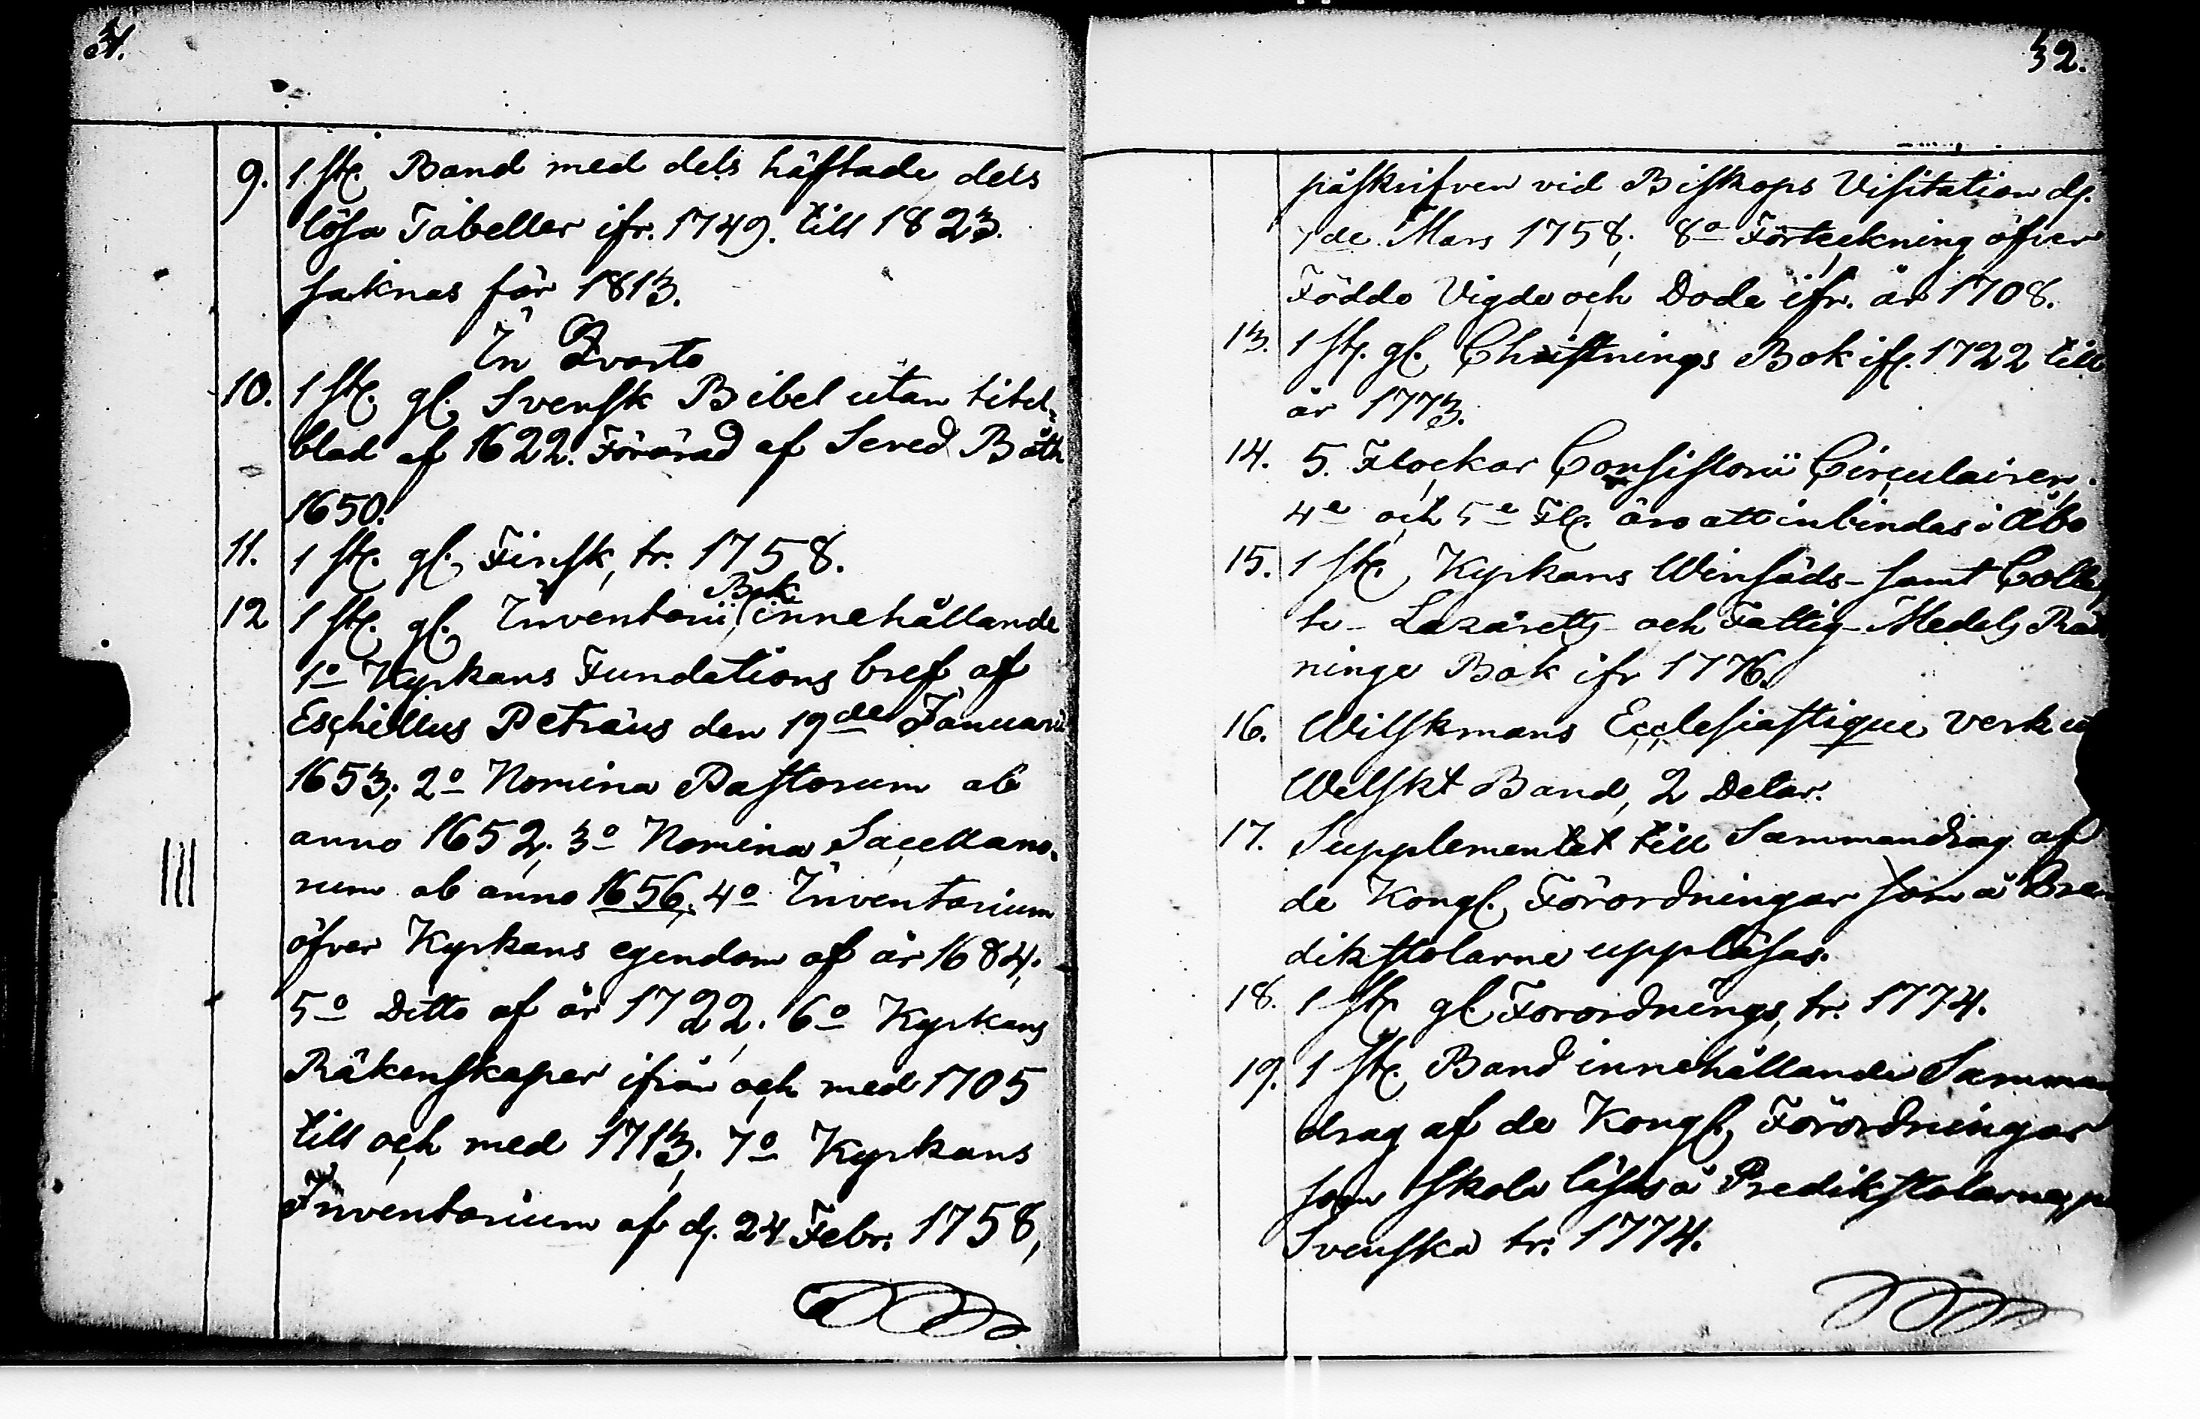 31.
9. 1 st. Band med dels häftade dels
lösa Tabeller ifr. 1749. till 1823.
saknas för 1813.
In Qvarto
10. 1 st. gl. Svensk Bibel utan titel-
blad af 1622. Förärad af Sered Båth
1650.
11. 1 st. gl. Finsk, tr. 1758.
12 1 st. gl. Inventarii Bok innehållande
1o Kyrkans Fundations bref af
Eschillus Peträus den 19de Januarii
1653; 2o Nomina Pastorum ab
anno 1652; 3o Nomina Sacellano-
rum ab anno 1656; 4o Inventarium
öfver Kyrkans egendom af år 1684;
5o Ditto af år 1722; 6o Kyrkans
Räkenskaper ifrån och med 1705
till och med 1713; 7o Kyrkans
Inventarium af d. 24 Febr. 1758,
32.
påskrifven vid Biskops Visitation d.
7de Mars 1758; 8o Förteckning öfver
Födde Vigde och Döde ifr. år 1708.
13. 1 st. gl. Christnings Bok ifr. 1722 till
år 1773.
14. 5. Flockar Consistorii Circulairer.
4e och 5e Fl. äro att inbindas i Åbo
15. 1 st. Kyrkans Winsäds- samt Colle
te- Lazaretts- och Fattig-Medels Räk
ninge Bok ifr 1776.
16. Wilskmans Ecclesiastique verk
Welskt Band, 2 Delar.
17. Supplementet till Sammandrag af
de Kongl. Förordningar som å Pre-
dikstolarne uppläsas.
18. 1 st. gl. Förordnings, tr. 1774.
19. 1 st. Band innehållande Samman
drag af de Kongl. Förordningar
som skola läsas å Predikstolarne, p
Svenska tr. 1774.